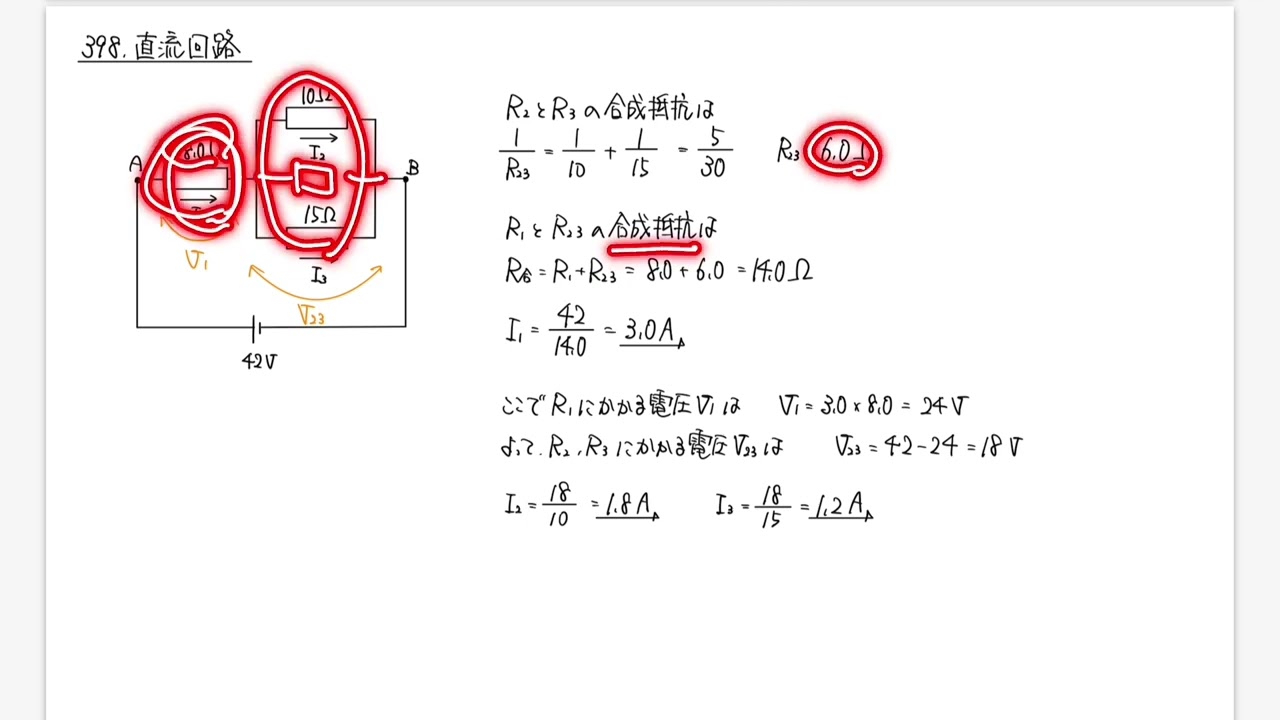 398. 直流回路
10Ω
I₂
8.0Ω
A
B
15Ω
I₃
V₁
V₂₃
42V
R₂とR₃の合成抵抗は
1/R₂₃ = 1/10 + 1/15 = 5/30
R₂₃ 6.0Ω
R₁とR₂₃の合成抵抗は
R合 = R₁ + R₂₃ = 8.0 + 6.0 = 14.0Ω
I₁ = 42/14.0 = 3.0A
ここでR₁にかかる電圧V₁は V₁ = 3.0 × 8.0 = 24V
よって、R₂、R₃にかかる電圧V₂₃は V₂₃ = 42 - 24 = 18V
I₂ = 18/10 = 1.8A I₃ = 18/15 = 1.2A